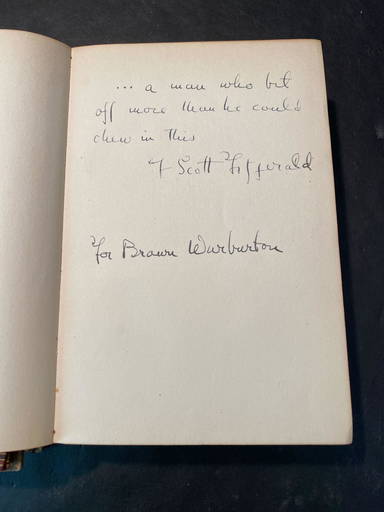 ... a man who bit
off more than he could
chew in this
F Scott Fitzgerald
For Brown Warburton